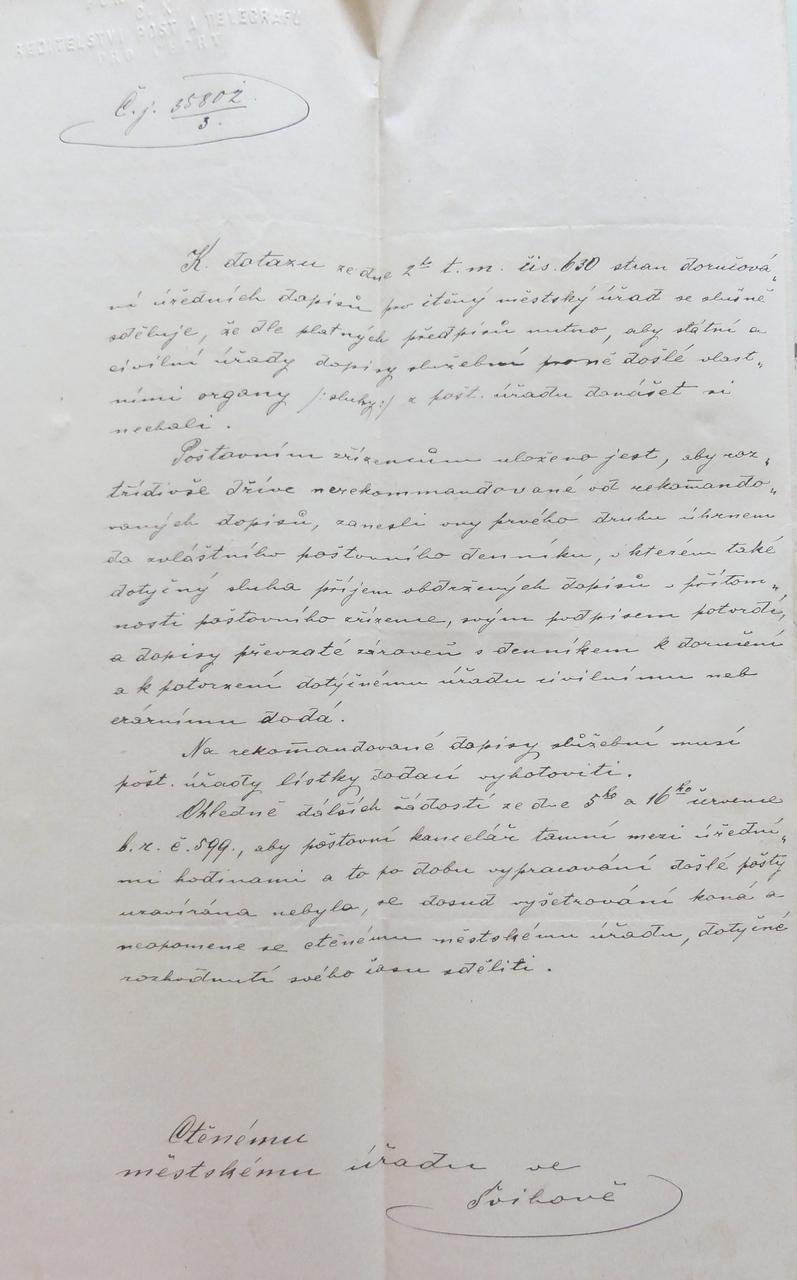 C. K.
ŘEDITELSTVÍ POŠT A TELEGRAFŮ
PRO ČECHY
Č. j. 35802
3.
K dotazu ze dne 2ho t. m. čís. 630 stran doručová„
ní úředních dopisů pro ctěný městský úřad se slušně
sděluje, že dle platných předpisů nutno, aby státní a
civilní úřady dopisy služební došlé vlast„
ními organy /:sluhy:/ z pošt. úřadu donášet si
nechali.
Poštovním zřízencům uloženo jest, aby roz„
třídivše dříve nerekommandované od rekomando„
vaných dopisů, zanesli ony prvého druhu úhrnem
do zvláštního poštovního denníku, v kterém také
dotyčný sluha příjem obdržených dopisů v přítom„
nosti poštovního zřízence, svým podpisem potvrdí,
a dopisy převzaté zároveň s denníkem k doručení
a k potvrzení dotyčnému úřadu civilnímu neb
erárnímu dodá.
Na rekomandované dopisy služební musí
pošt. úřady lístky dodací vyhotoviti.
Ohledně dalších žádostí ze dne 5ho a 16ho července
b. r. č. 599., aby poštovní kancelář tamní mezi úřední„
mi hodinami a to po dobu vypracování došlé pošty
uzavírána nebyla, se dosud vyšetrování koná a
neopomene se ctěnému městskému úřadu, dotyčné
rozhodnutí svého času sděliti.
Ctěnému
městskému úřadu ve
Švihově